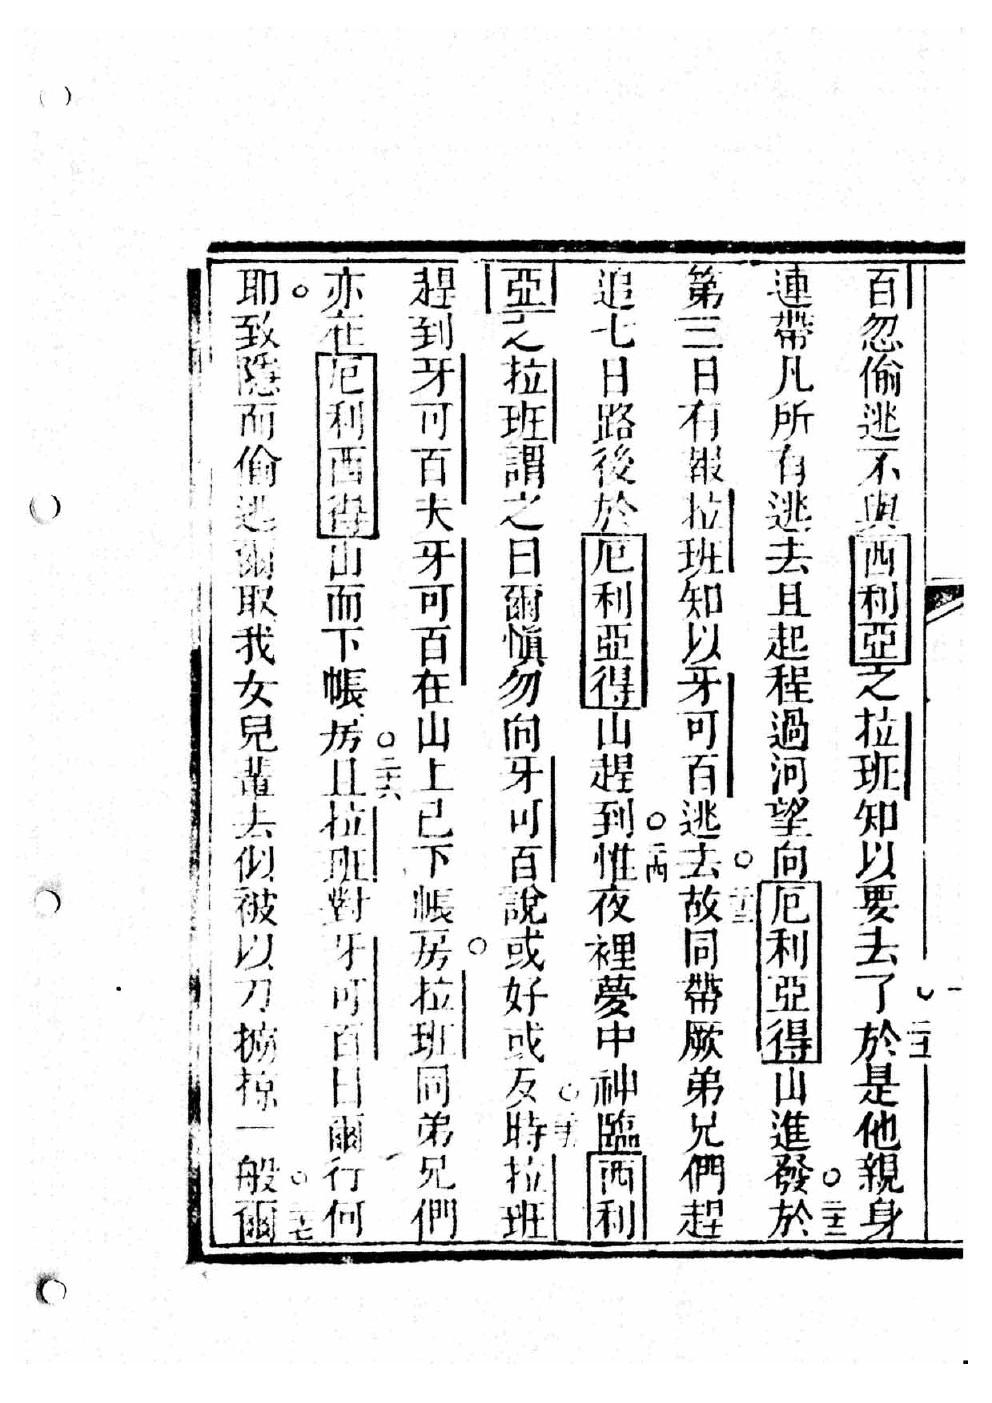 百忽偷逃不與西利亞之拉班知以要去了。二十一於是他親身
連帶凡所有逃去且起程過河望向厄利亞得山進發。二十二於
第三日有報拉班知以牙可百逃去。二十三故同帶厥弟兄們趕
追七日路後於厄利亞得山趕到。二十四惟夜裡夢中神臨西利
亞之拉班謂之曰爾慎勿向牙可百說或好或反。二十五時拉班
趕到牙可百夫牙可百在山上已下帳房。拉班同弟兄們
亦在厄利亞得山而下帳房。二十六且拉班對牙可百曰爾行何
耶。致隱而偷逃爾取我女兒輩去似被以刀擄掠一般。二十七爾